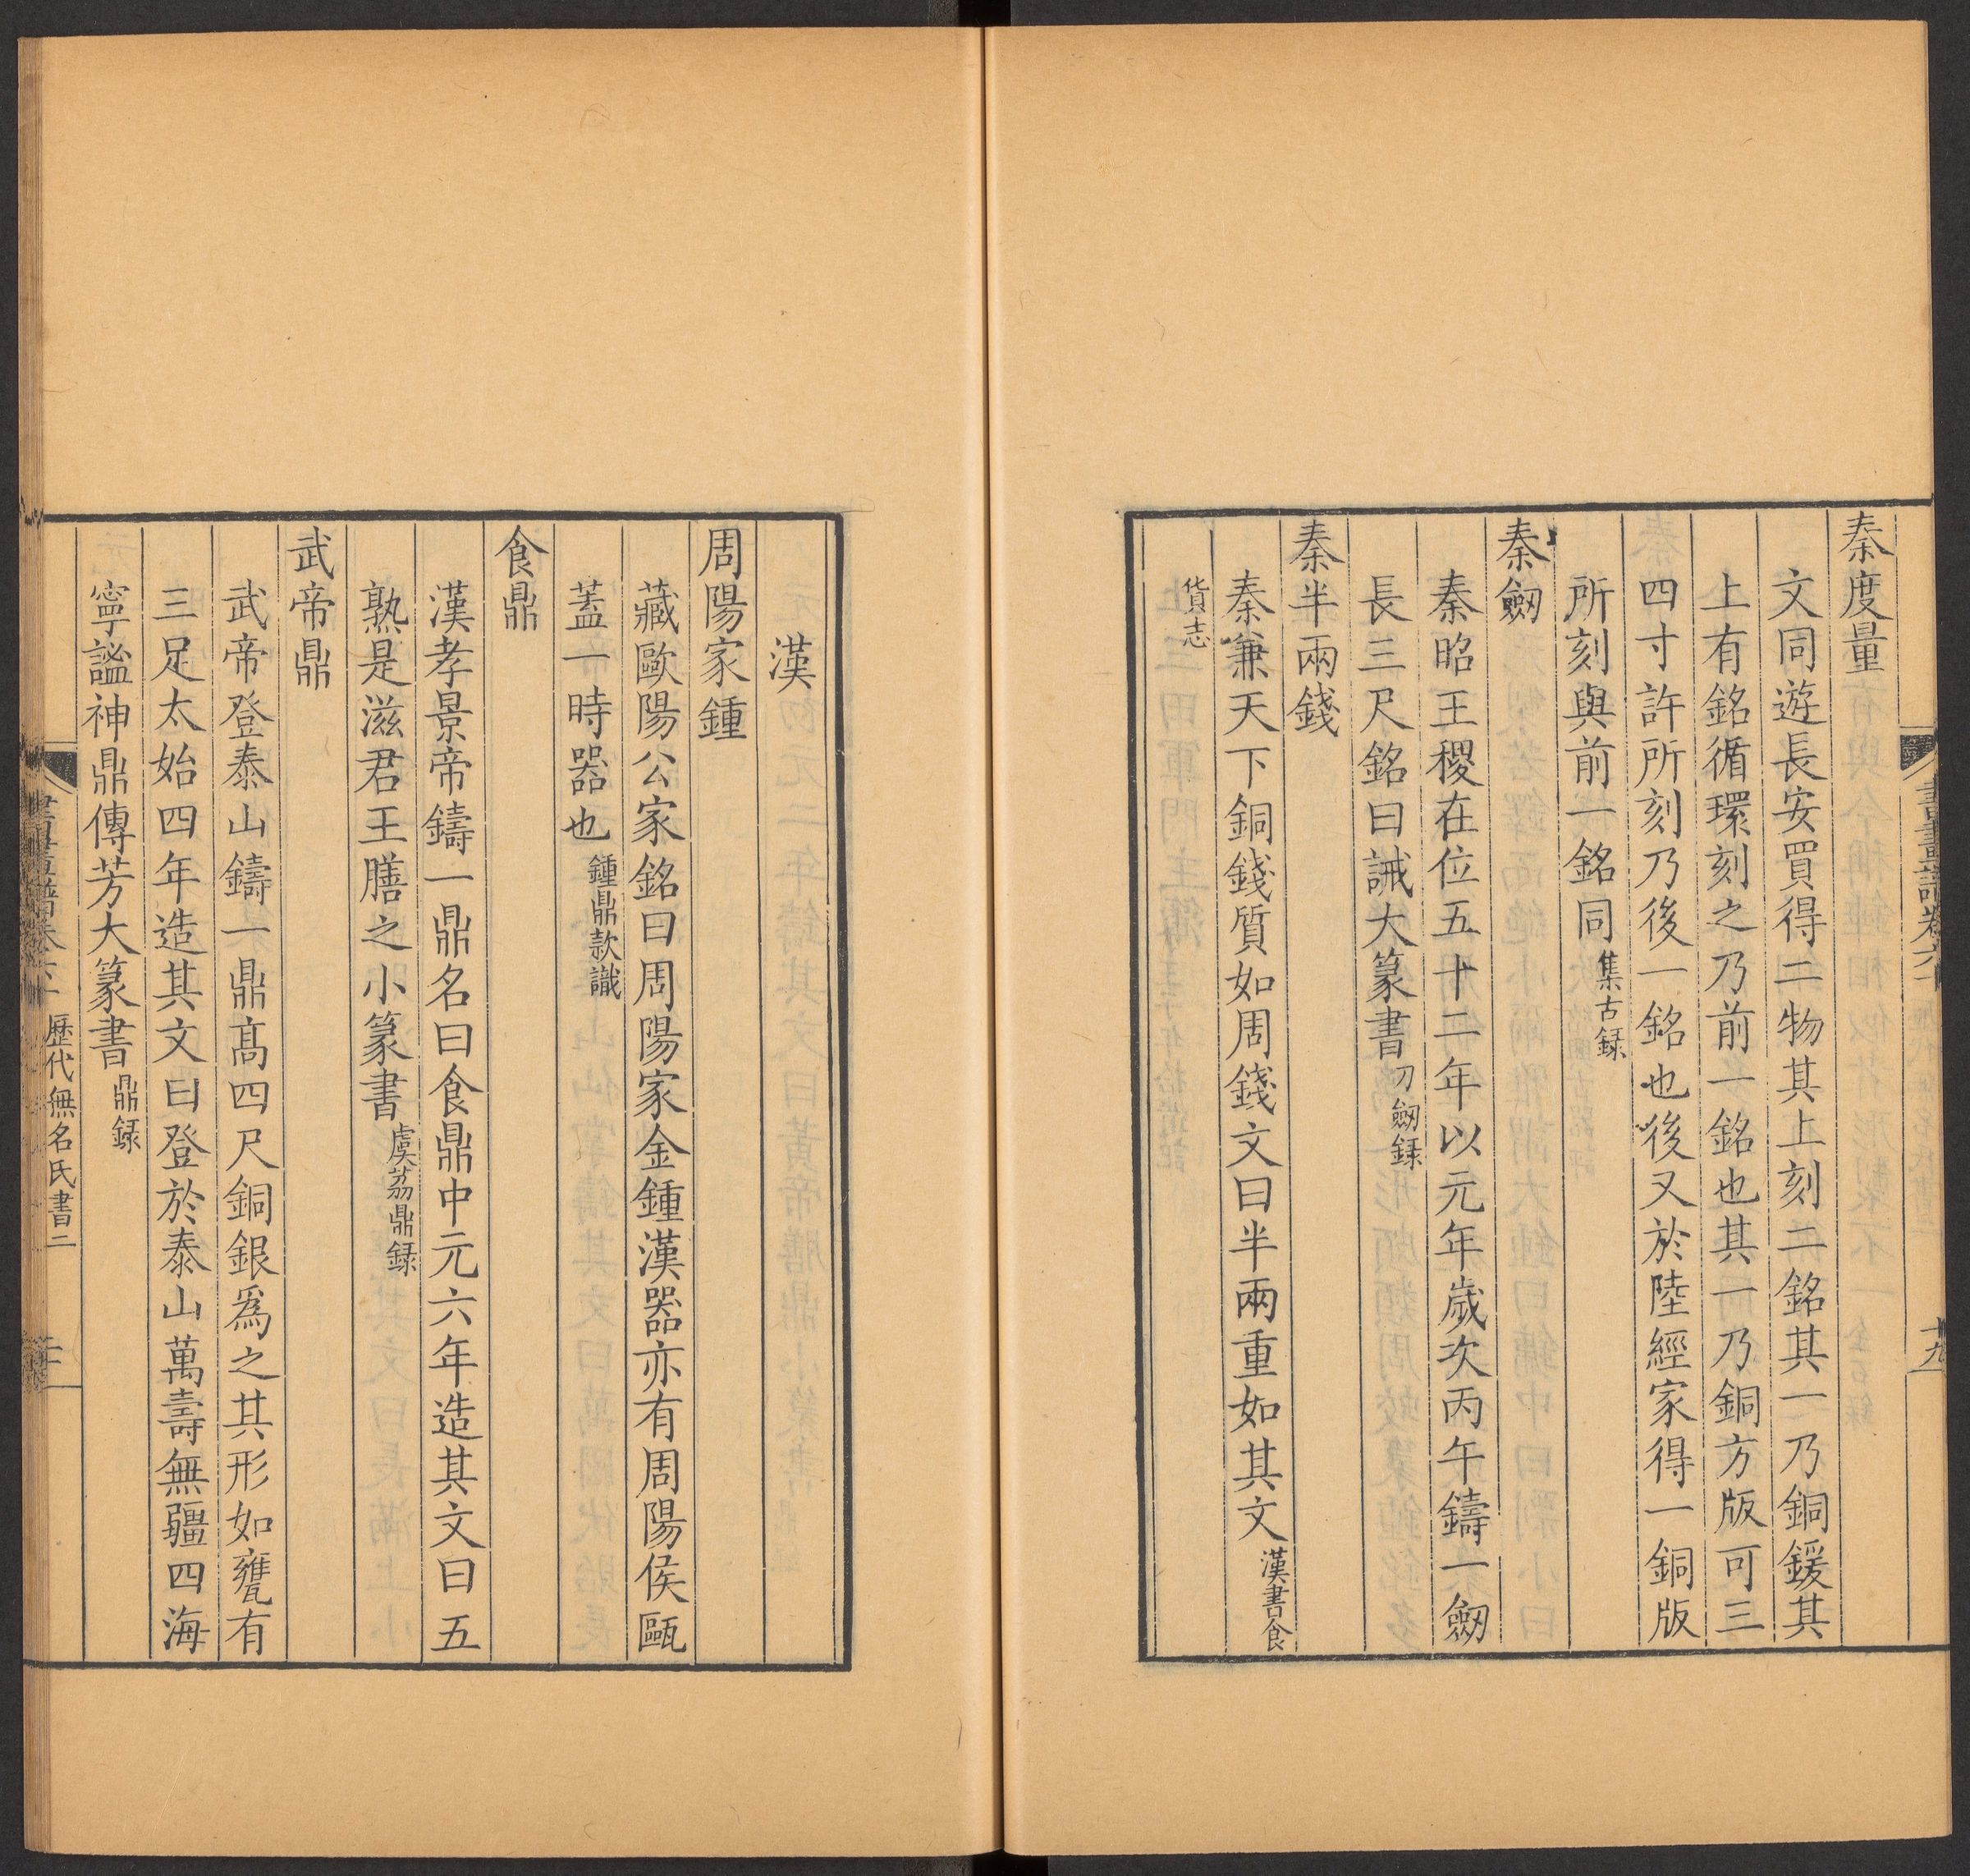 秦度量
文同遊長安買得二物其上刻二銘其一乃銅鍰其
上有銘循環刻之乃前一銘也其一乃銅方版可三
四寸許所刻乃後一銘也後又於陸經家得一銅版
所刻與前一銘同集古録
秦劒
秦昭王稷在位五十二年以元年歲次丙午鑄一劒
長三尺銘曰誡大篆書刀劒録
秦半兩錢
秦兼天下銅錢質如周錢文曰半兩重如其文漢書食
貨志
漢
周陽家鍾
藏歐陽公家銘曰周陽家金鍾漢器亦有周陽侯甌
蓋一時器也鍾鼎款識
食鼎
漢孝景帝鑄一鼎名曰食鼎中元六年造其文曰五
熟是滋君王膳之小篆書虞荔鼎録
武帝鼎
武帝登泰山鑄一鼎高四尺銅銀爲之其形如甕有
三足太始四年造其文曰登於泰山萬壽無疆四海
寧謐神鼎傳芳大篆書鼎録
歷代無名氏書二